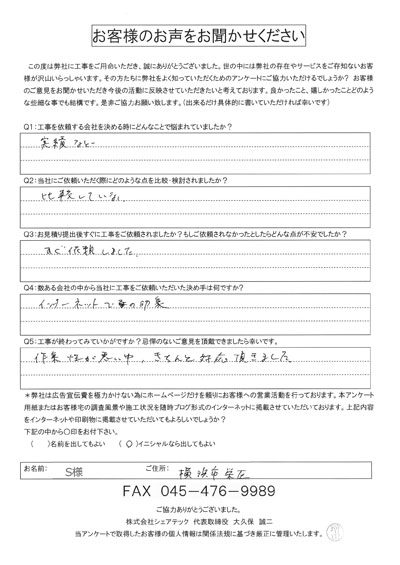 お客様のお声をお聞かせください
この度は弊社に工事をご用命いただき、誠にありがとうございました。世の中には弊社の存在やサービスをご存知ないお客
様が沢山いらっしゃいます。その方たちに弊社をよく知っていただくためのアンケートにご協力いただけるでしょうか？ お客様
のご意見をお聞かせいただき今後の活動に反映させていただきたいと考えております。良かったこと、嬉しかったことどのよう
な些細な事でも結構です。是非ご協力お願い致します。（出来るだけ具体的に書いていただければ幸いです）
Q1：工事を依頼する会社を決める時にどんなことで悩まれていましたか？
実績など
Q2：当社にご依頼いただく際にどのような点を比較・検討されましたか？
比較していない
Q3：お見積り提出後すぐに工事をご依頼されましたか？もしご依頼されなかったとしたらどんな点が不安でしたか？
すぐ依頼しました。
Q4：数ある会社の中から当社に工事をご依頼いただいた決め手は何ですか？
インターネットでの印象
Q5：工事が終わってみていかがですか？忌憚のないご意見を頂戴できましたら幸いです。
作業性が悪い中、きちんと対応頂きました。
＊弊社は広告宣伝費を極力かけない為にホームページだけを頼りにお客様への営業活動を行っております。本アンケート
用紙またはお客様宅の調査風景や施工状況を随時ブログ形式のインターネットに掲載させていただいております。上記内容
をインターネットや印刷物に掲載させていただいてもよろしいでしょうか？
下記の中から〇印をお付下さい。
（ ）名前を出してもよい （〇）イニシャルなら出してもよい
お名前： S様 ご住所： 横浜市栄区
FAX 045-476-9989
ご協力ありがとうございました。
株式会社シェアテック 代表取締役 大久保 誠二
当アンケートで取得したお客様の個人情報は関係法規に基づき厳正に管理いたします。